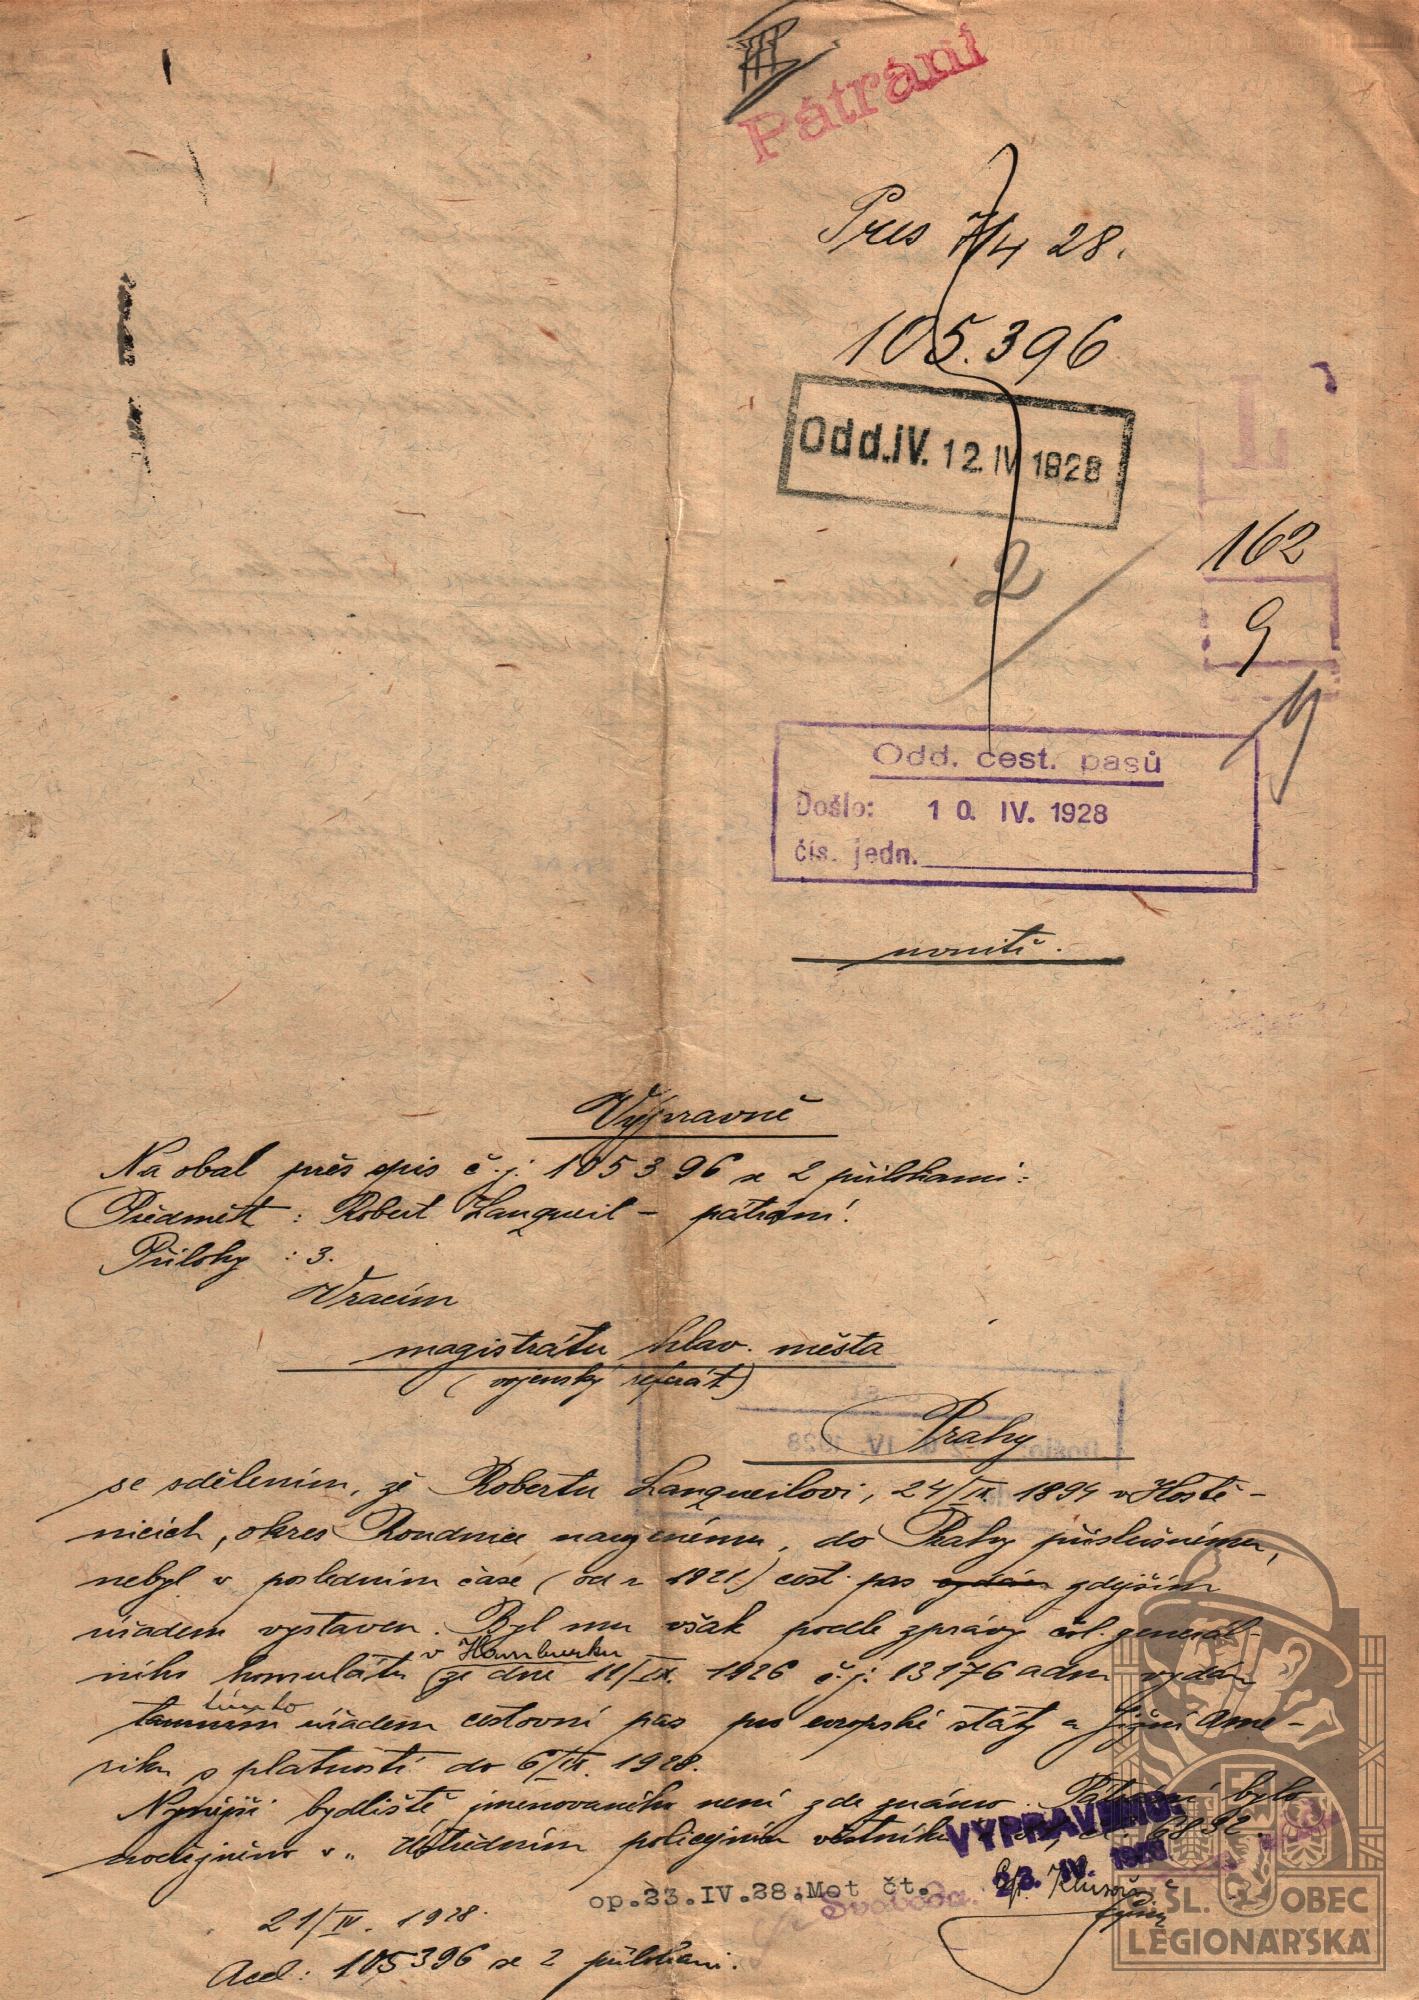 Pátrání
Pres 7/4 28.
105.396
Odd.IV. 12. IV 1928
L
162
2
9
Odd. cest. pasů
Došlo: 10. IV. 1928
čís. jedn.
Výpravně
Na obal přes opis č.j. 105396 se 2 přílohami:
Předmět: Robert Langweil – pátrání.
Přílohy: 3.
Vracím
magistrátu hlav. města
(vojenský referát)
Prahy
se sdělením, že Robertu Langweilovi, 24/IX. 1894 v Hostě-
nicích, okres Roudnice narozenému, do Prahy příslušnému,
nebyl v poslednim čase (od r. 1921) cest. pas zdejším
úřadem vystaven. Byl mu však podle zprávy čsl. generál-
v Hamburku
ního konsulátu ze dne 11/IX. 1926 č.j. 13176 adm vydán
tímto
úřadem cestovní pas pro evropské státy a jižní Ame-
riku s platností do 6/IX. 1928.
Nynější bydliště jmenovaného není zde známo. Pátrání bylo
uveřejněno v „Ústředním policejním věstníku
VYPRAVENO:
23. IV. 1928
op.23.IV.28.Mot čt.
Svoboda
21/IV. 1928.
Acel: 105396 se 2 přílohami.
ČSL. OBEC
LEGIONÁŘSKÁ